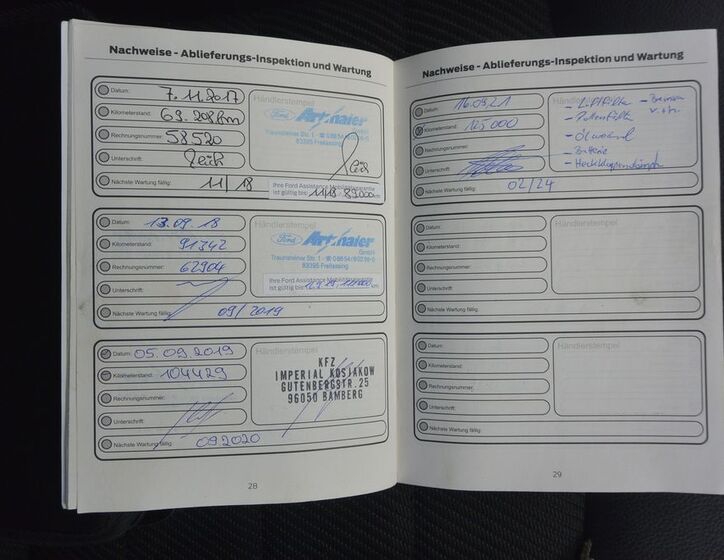 Nachweise - Ablieferungs-Inspektion und Wartung
Datum: 7.11.2017
Kilometerstand: 69.208km
Rechnungsnummer: 58520
Unterschrift:
Nächste Wartung fällig: 11/18
Händlerstempel
Ford
GmbH
Traunsteiner Str. 1
83395 Freilassing
Ihre Ford Assistance Mobilitätsgarantie
ist gültig bis: 11/18 89.000 km
Datum: 13.09.18
Kilometerstand: 91342
Rechnungsnummer: 62904
Unterschrift:
Nächste Wartung fällig: 09/2019
Händlerstempel
Ford
GmbH
Traunsteiner Str. 1
83395 Freilassing
Ihre Ford Assistance Mobilitätsgarantie
ist gültig bis: km
Datum: 05.09.2019
Kilometerstand: 104429
Rechnungsnummer:
Unterschrift:
Nächste Wartung fällig: 09.2020
Händlerstempel
KFZ
IMPERIAL KOSJAKOW
GUTENBERGSTR. 25
96050 BAMBERG
28
Nachweise - Ablieferungs-Inspektion und Wartung
Datum: 16.09.21
Kilometerstand: 125000
Rechnungsnummer:
Unterschrift:
Nächste Wartung fällig: 02/24
Händlerstempel
- Luftfilter - Bremsen
- Pollenfilter v. + h.
- Ölwechsel
- Batterie
- Heckklappendämpfer
Datum:
Kilometerstand:
Rechnungsnummer:
Unterschrift:
Nächste Wartung fällig:
Händlerstempel
Datum:
Kilometerstand:
Rechnungsnummer:
Unterschrift:
Nächste Wartung fällig:
Händlerstempel
29